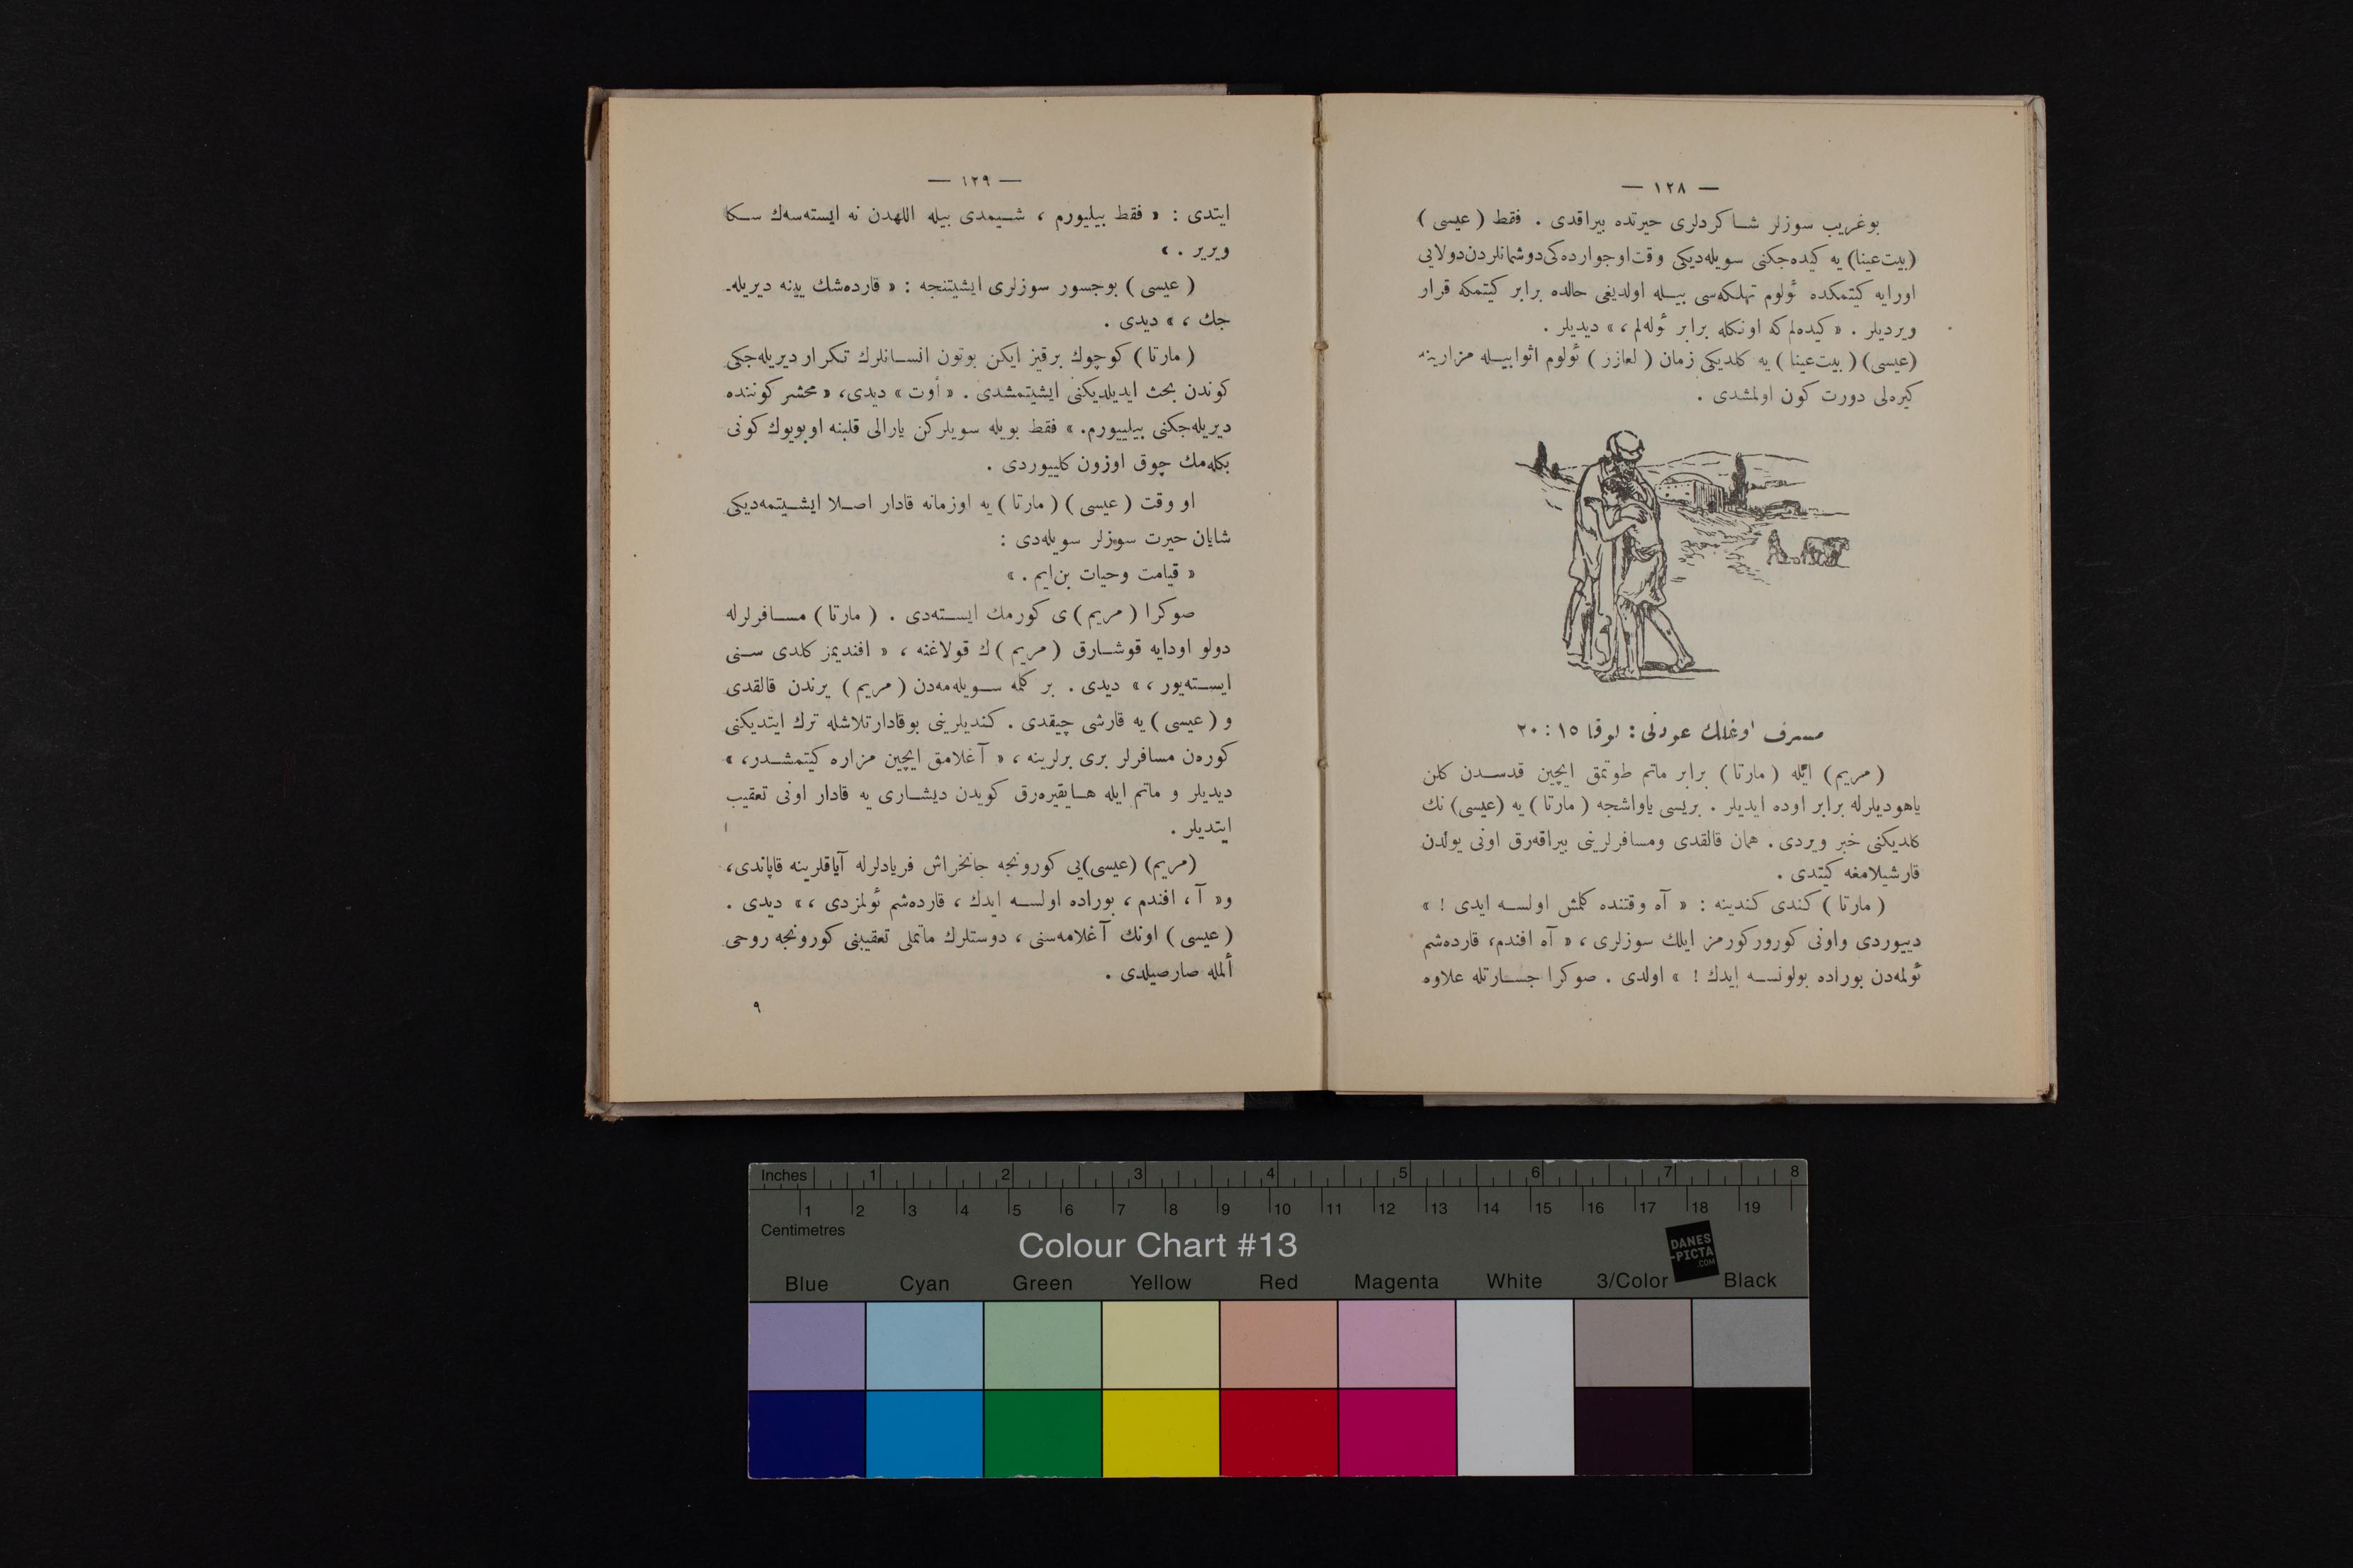 — ١٢٨ —
بوغریب سوزلر شاكردلری حیرتده بیراقدی . فقط ( عیسی )
(بیت‌عینا) یه كیده‌جكنی سویله‌دیكی وقت‌اوجوارده‌كی‌دوشمانلردن‌دولایی
اورایه كیتمكده ئولوم تهلكه‌سی بیله اولدیغی حالده برابر كیتمكه قرار
ویردیلر . « كیده‌لم‌كه اونكله برابر ئوله‌لم ، » دیدیلر .
(عیسی) ( بیت‌عینا ) یه كلدیكی زمان ( لعازر ) ئولوم اثوابیله مزارینه
كیره‌لی دورت كون اولمشدی .
مسرف اوغلك عودتی : لوقا ١٥ : ٢٠
( مریم) ایله ( مارتا ) برابر ماتم طوتمق ایچین قدسدن كلن
یاهودیلرله برابر اوده ایدیلر . بریسی یاواشجه ( مارتا ) یه (عیسی) نك
كلدیكنی خبر ویردی . همان قالقدی ومسافرلرینی بیراقه‌رق اونی یولدن
قارشیلامغه كیتدی .
( مارتا ) كندی كندینه : « آه وقتنده كلمش اولسه ایدی ! »
دییوردی واونی كوروركورمز ایلك سوزلری ، « آه افندم، قارده‌شم
ئولمه‌دن بوراده بولونسه ایدك ! » اولدی . صوكرا جسارتله علاوه
— ١٢٩ —
ایتدی : « فقط بیلیورم ، شیمدی بیله اللهدن نه ایسته‌سه‌ك سكا
ویریر . »
( عیسی ) بوجسور سوزلری ایشیتنجه : « قارده‌شك یینه دیریله-
جك ، » دیدی .
( مارتا ) كوچوك برقیز ایكن بوتون انسانلرك تكرار دیریله‌جكی
كوندن بحث ایدیلدیكنی ایشیتمشدی . « أوت » دیدی، « محشر كوننده
دیریله‌جكنی بیلییورم. » فقط بویله سویلركن یارالی قلبنه اوبویوك كونی
بكله‌مك چوق اوزون كلییوردی .
او وقت ( عیسی ) ( مارتا ) یه اوزمانه قادار اصلا ایشیتمه‌دیكی
شایان حیرت سوزلر سویله‌دی :
« قیامت وحیات بن‌ایم . »
صوكرا ( مریم ) ی كورمك ایسته‌دی . ( مارتا ) مسافرلرله
دولو اودایه قوشارق ( مریم ) ك قولاغنه ، « افندیمز كلدی سنی
ایسته‌یور ، » دیدی . بر كلمه سویله‌مه‌دن ( مریم ) یرندن قالقدی
و ( عیسی ) یه قارشی چیقدی . كندیلرینی بوقادارتلاشله ترك ایتدیكنی
كوره‌ن مسافرلر بری برلرینه ، « آغلامق ایچین مزاره كیتمشدر، »
دیدیلر و ماتم ایله هایقیره‌رق كویدن دیشاری یه قادار اونی تعقیب
ایتدیلر .
(مریم) (عیسی)یی كورونجه جانخراش فریادلرله آیاقلرینه قاپاندی،
و« آ ، افندم ، بوراده اولسه ایدك ، قارده‌شم ئولمزدی ، » دیدی .
( عیسی ) اونك آغلامه‌سنی ، دوستلرك ماتملی تعقیبنی كورونجه روحی
ألمله صارصیلدی .
٩
Inches 1 2 3 4 5 6 7 8
1 2 3 4 5 6 7 8 9 10 11 12 13 14 15 16 17 18 19
Centimetres
Colour Chart #13
DANES
-PICTA
.COM
Blue Cyan Green Yellow Red Magenta White 3/Color Black